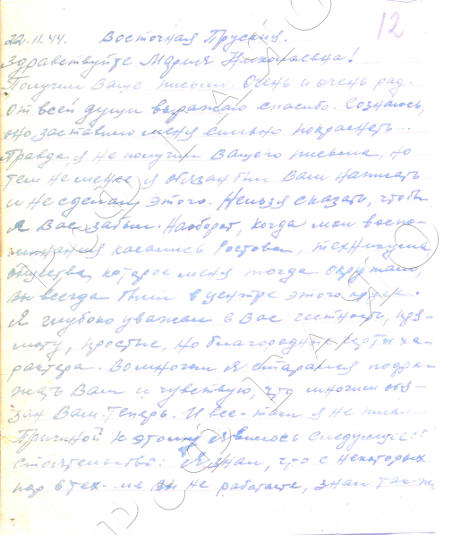 12
22.11.44. Восточная Пруссия.
Здравствуйте Мария Николаевна!
Получил Ваше письмо. Очень и очень рад.
От всей души выражаю спасибо. Сознаюсь,
оно заставило меня сильно покраснеть...
Правда, я не получил Вашего письма, но
тем не менее я обязан был Вам написать
и не сделал этого. Нельзя сказать, чтобы
я Вас забыл. Наоборот, когда мои воспо-
минания касались Ростова, техникума
общества, которое меня тогда окружало,
вы всегда были в центре этого
Я глубоко уважал в Вас честность, пря-
моту, простые, но благородные черты ха-
рактера. Во многом я старался подра-
жать Вам и чувствую, что многим обя-
зан Вам теперь. И все-таки я не писал.
Причиной к этому явилось следующее
стоятельство: Я знал, что с некоторых
пор в тех-ме вы не работаете, знал так-же